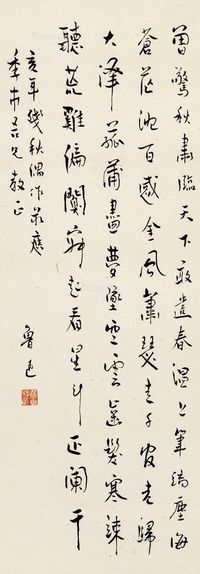 曾驚秋肅臨天下敢遣春溫上筆端塵海
蒼茫沈百感金風蕭瑟走千官老歸
大澤菰蒲盡夢墜空雲齒髮寒竦
聽荒雞偏闃寂起看星斗正闌干
亥年殘秋偶作錄應
季市吾兄教正
魯迅